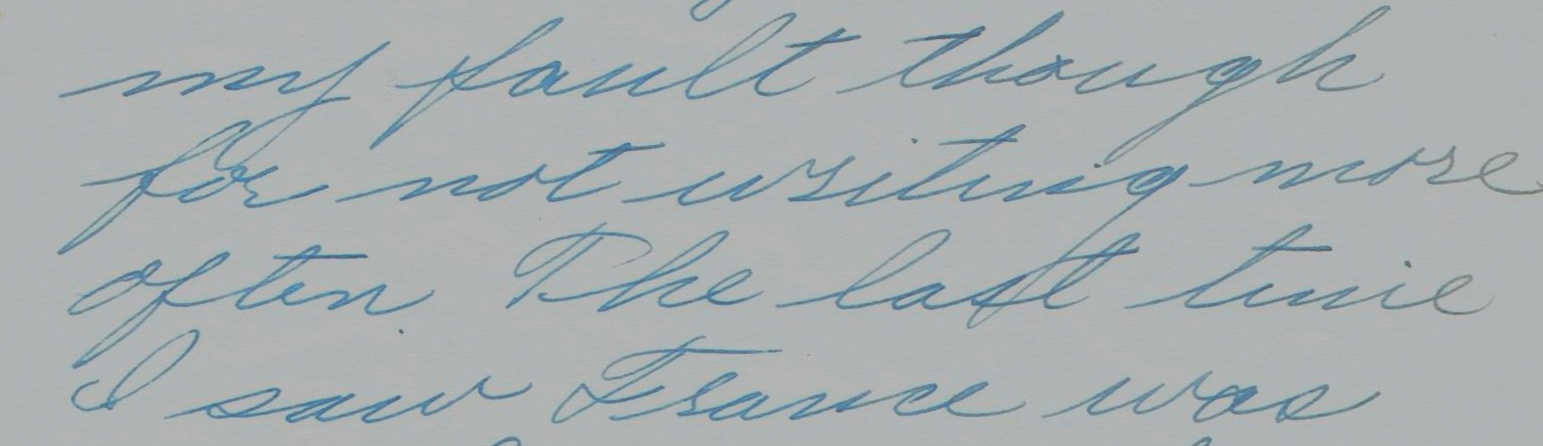 my fault though
for not writing more
often. The last time
I saw France was